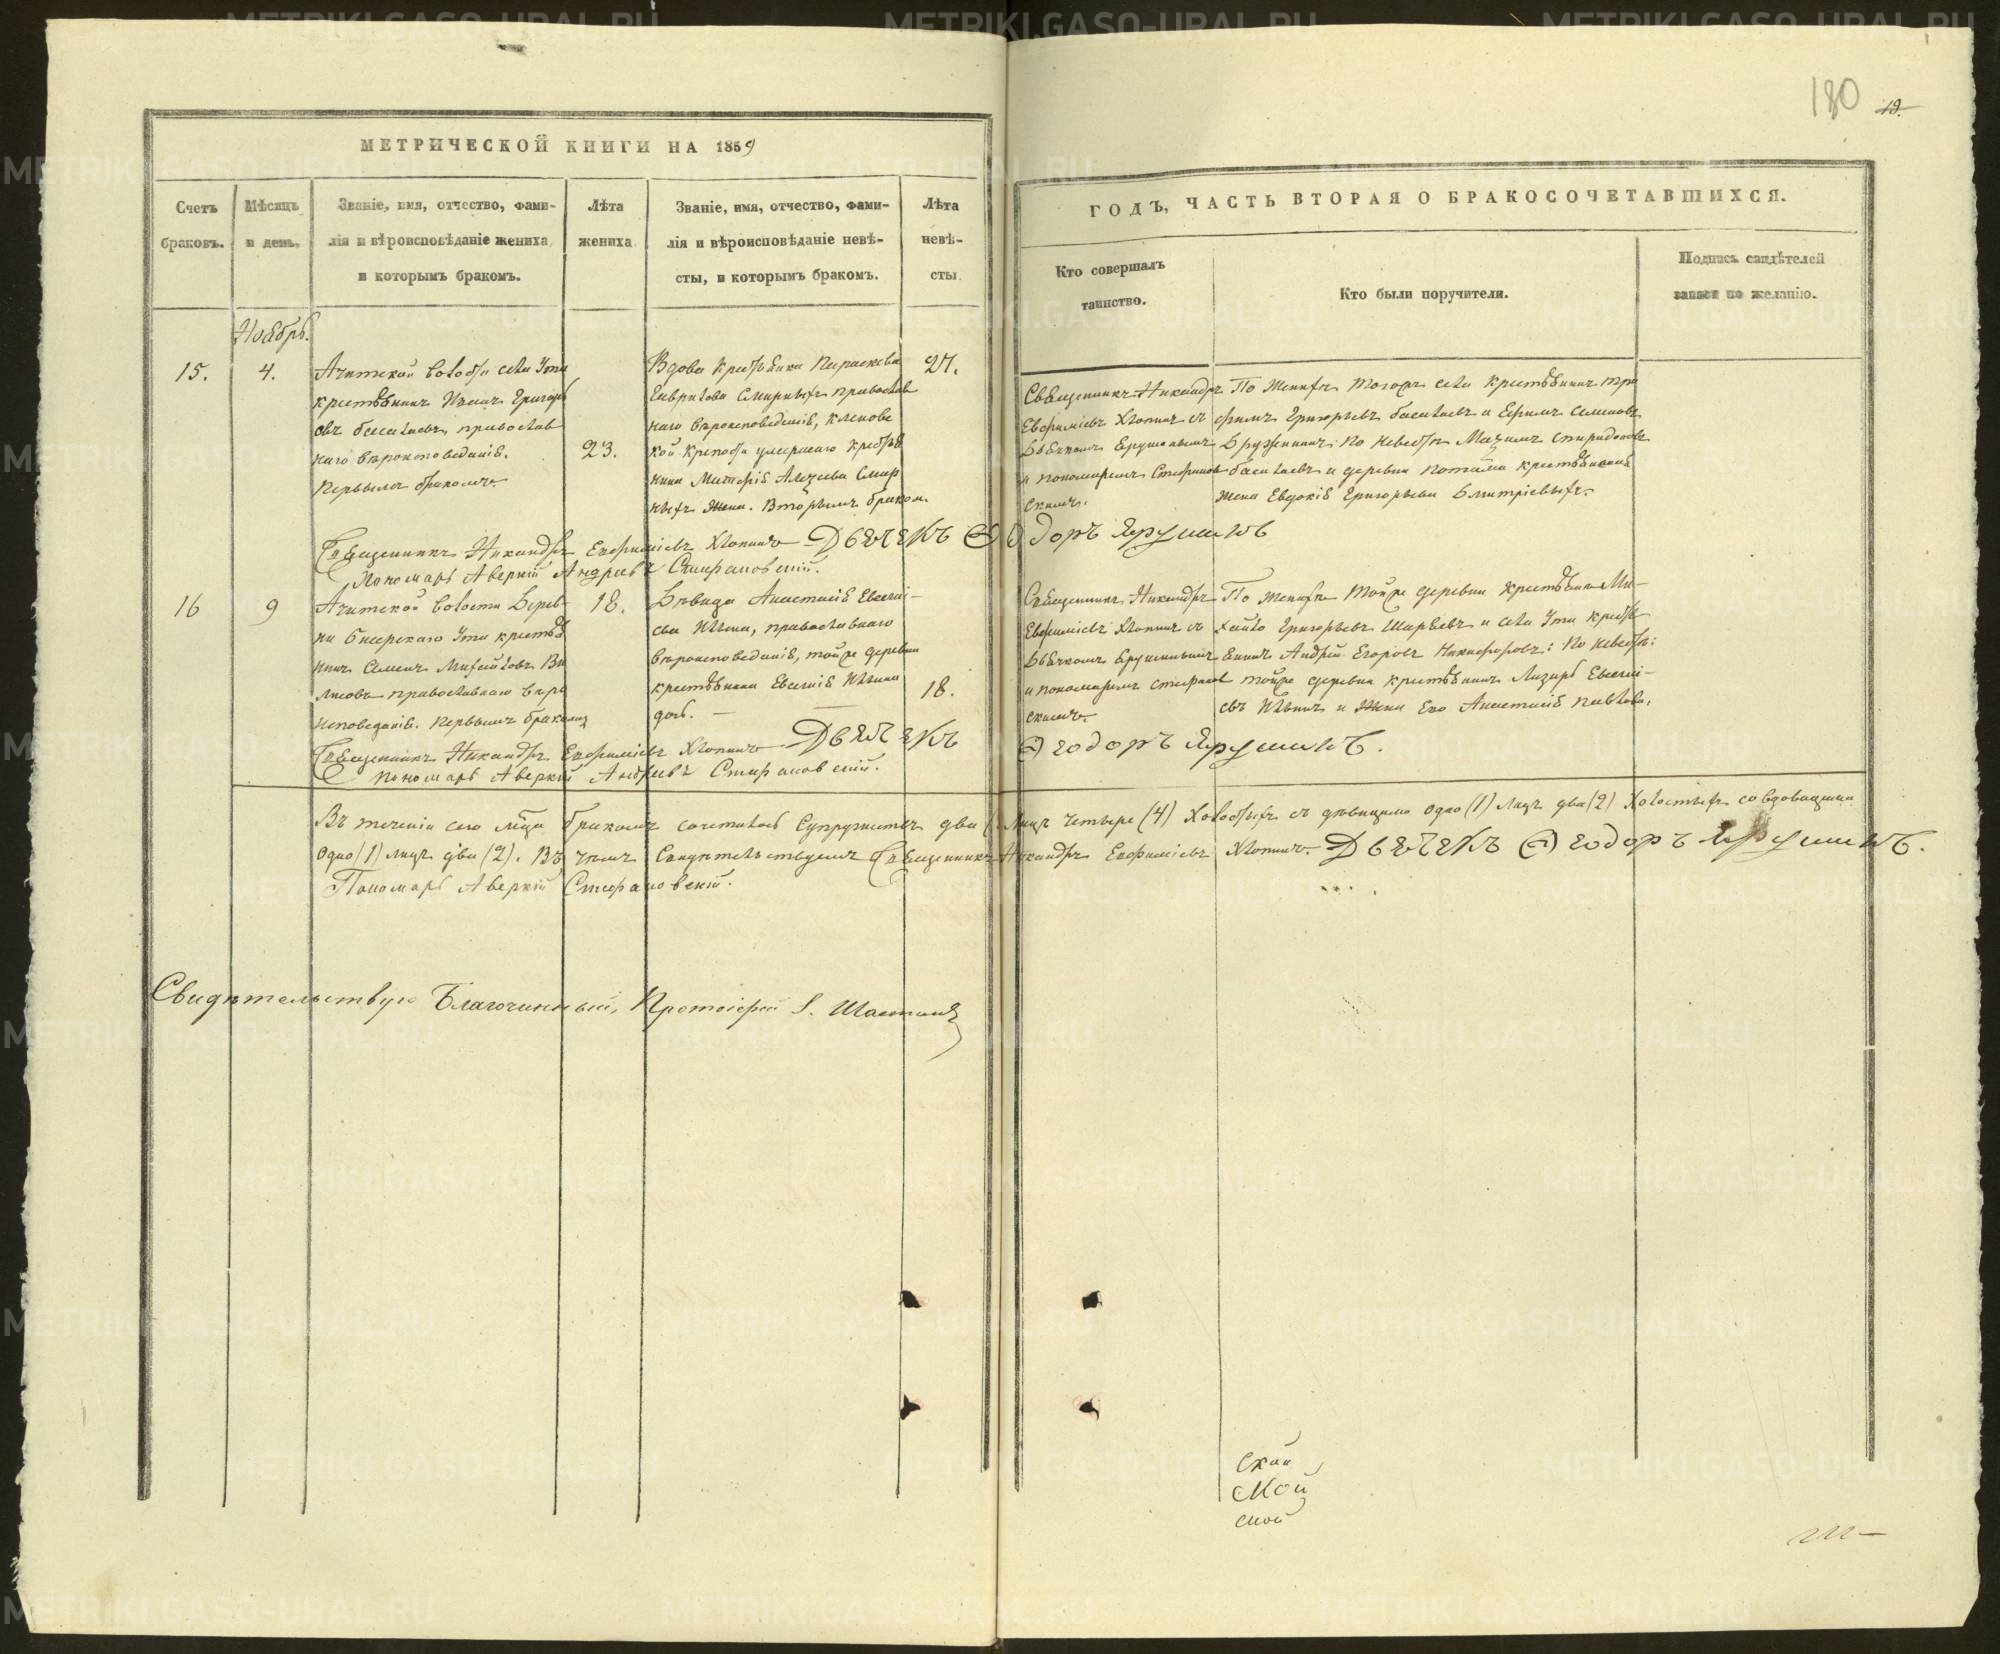 180
19.
МЕТРИЧЕСКОЙ КНИГИ НА 1859
ГОДЪ, ЧАСТЬ ВТОРАЯ О БРАКОСОЧЕТАВШИХСЯ.
Счетъ
браковъ.
Мѣсяцъ
и день.
Званіе, имя, отчество, фами-
лія и вѣроисповѣданіе жениха,
и которымъ бракомъ.
Лѣта
жениха.
Званіе, имя, отчество, фами-
лія и вѣроисповѣданіе невѣ-
сты, и которымъ бракомъ.
Лѣта
невѣ-
сты.
Кто совершалъ
таинство.
Кто были поручители.
Подпись свидѣтелей
записи по желанію.
Ноябрь.
15.
4.
Ачитской волости села Ута
крестьянинъ Иванъ Григорь
евъ православ
наго вѣроисповеданія.
Первымъ бракомъ.
23.
Вдова крестьянка Параскева
Гаврилова Смирныхъ православ
наго вѣроисповеданія, кленов
кой крепости умершаго крестья
нина Алексѣева Смир
ныхъ жена. Вторымъ бракомъ.
27.
Священникъ Никандръ
Евфиміевъ Хлопинъ съ
Дьячкомъ Ярушинымъ
и пономаремъ Стефанов
скимъ.
По женихѣ тогожъ села крестьянинъ Тро
фимъ Григорьевъ и Ефимъ Семеновъ
Дружининъ: по невестѣ Максимъ Спиридоновъ
и деревни Потама крестьянская
жена Евдокія Григорьева Дмитріевыхъ.
Священникъ Никандръ Евфиміевъ Хлопинъ Дьячекъ Ѳеодоръ Ярушинъ
Пономарь Аверкій Андреевъ Стефановскій.
16
9
Ачитской волости Дерев-
ни Бисерскаго Ута крестья
нинъ Семенъ Михайловъ
православнаго вѣро
исповеданія. Первымъ бракомъ
18.
Дѣвица Анастасія Евсегні-
ева Ильина, православнаго
вѣроисповеданія, тойже деревни
крестьянина Евсегнія Ильина
дочь. —
18.
Священникъ Никандръ
Евфиміевъ Хлопинъ съ
Дьячкомъ Ярушинымъ
и пономаремъ Стефанов
скимъ.
По женихѣ тойже деревни крестьянинъ Ми-
хайло Григорьевъ и села Ута кресть
янинъ Андрей Егоровъ Никифоровъ: по невестѣ:
тойже деревни крестьянинъ Лазарь Евсегні-
евъ Ильинъ и жена его Анастасія Павлова.
Священникъ Никандръ Евфиміевъ Хлопинъ Дьячекъ Ѳеодоръ Ярушинъ.
Пономарь Аверкій Андреевъ Стефановскій.
Въ теченіи сего мѣсяца бракомъ сочеталось супружествъ два лицъ четыре (4) холостыхъ съ дѣвицами одно (1) лицъ два (2) холостыхъ со вдовицами
одно (1) лицъ два (2). Въ чемъ свидѣтельствуемъ Священникъ Никандръ Евфиміевъ Хлопинъ. Дьячекъ Ѳеодоръ Ярушинъ.
Пономарь Аверкій Стефановскій.
Свидѣтельствую Благочинный, Протоіерей
ской
ской
ской
METRIKI.GASO-URAL.RU